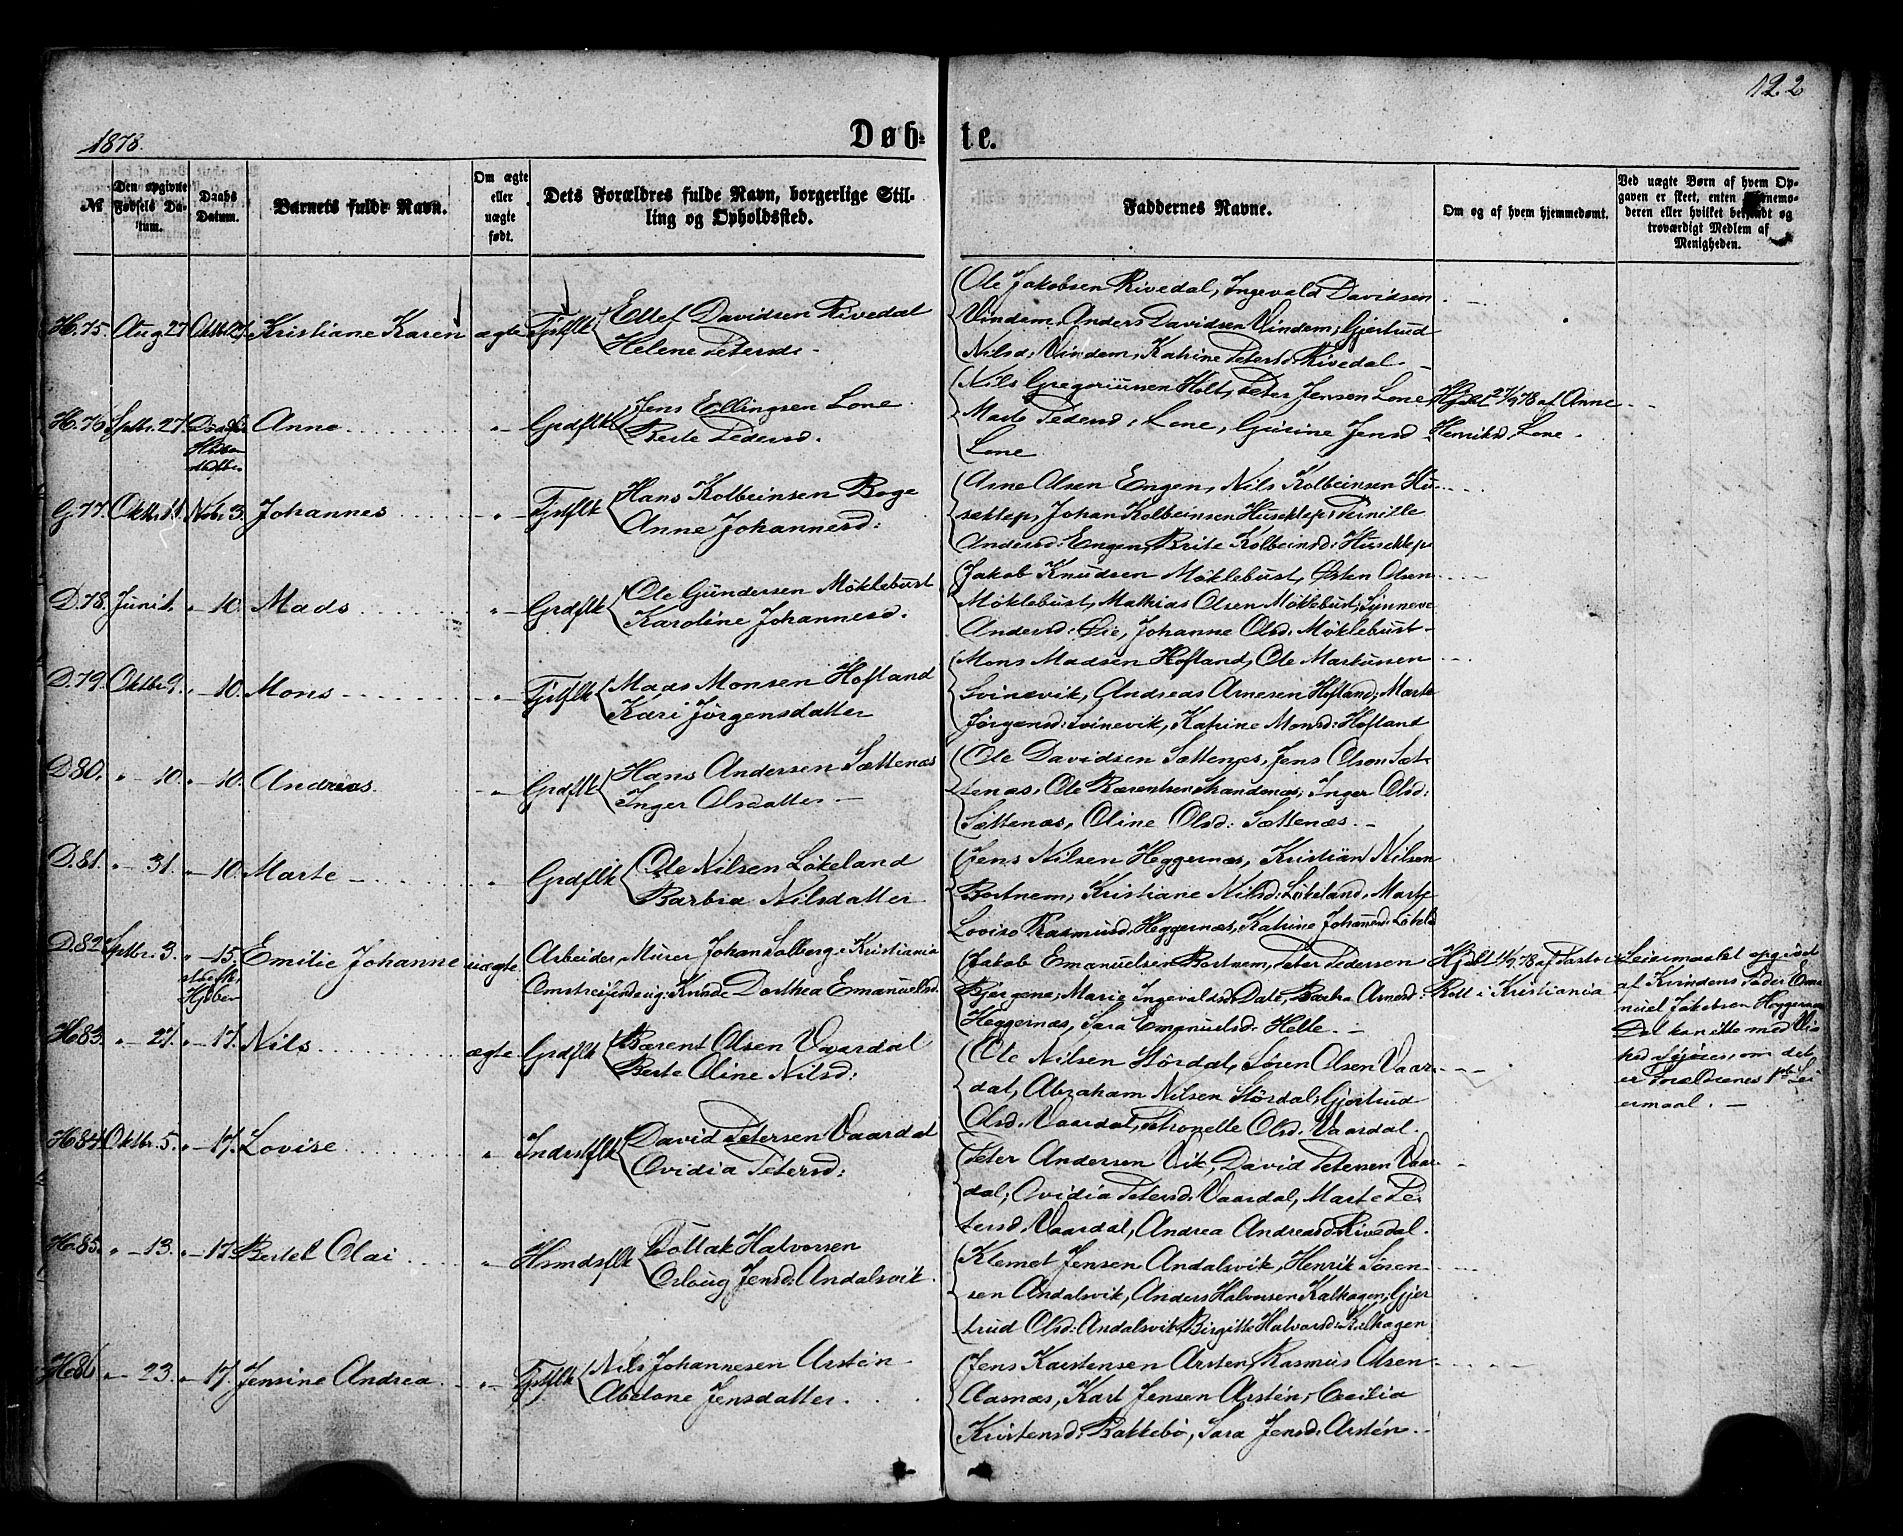 122
1878.
Døb-
te.
№
Den opgivne Fødsels Datum.
Daabs Datum.
Barnets fulde Navn.
Om ægte eller uægte født.
Dets Forældres fulde Navn, borgerlige Stilling og Opholdssted.
Faddernes Navne.
Om og af hvem hjemmedøbt.
Ved uægte Børn af hvem Opgaven er skeet, enten Barnemoderen eller hvilket bekjendt og troværdigt Medlem af Menigheden.
H. 75. Aug 27 Oktbr 27 Kristiane Karen ægte Fjstflk
Ellef Davidsen Rivedal
Helene Petersd.
Ole Jakobsen Rivedal, Ingevald Davidsen
Vindem, Anders Davidsen Vindem, Gjertrud
Nilsd. Vindem, Katrine Petersd. Rivedal
H. 76 Sptbr. 27. Anne " Grdflk
Jens Ellingsen Lone
Berte Pedersd.
Nils Gregoriussen Holt, Peter Jensen Lone
Mads Pedersd. Lone, Gurine Jensd
Lone
Hjdbt 27/9 78 af Anne
Henriksd. Lone.
G. 77. Oktbr. 11 Nvbr 3. Johannes " Fjstflk
Hans Kolbeinsen Boge
Anne Johannesd:
Arne Olsen Engen, Nils Kolbeinsen Hu-
seklep, Johan Kolbeinsen Huseklep, Pernille
Andersd: Engen, Brite Kolbeinsd: Huseklep
D. 78. Juni 1. " 10. Mads " Grdflk
Ole Gundersen Møklebust
Karoline Johannesd.
Jakob Knudsen Møklebust, Østen Olsen
Møklebust, Mathias Olsen Møklebust, Synneve
Andersd: Øie, Johanne Olsd. Møklebust
D. 79. Oktbr 9. " 10. Mons " Fjstflk
Mads Monsen Hofland
Kari Jørgensdatter
Mons Madsen Hofland, Ole Markussen
Svinevik, Andreas Arnesen Hofland, Marte
Jørgensd: Svinevik, Katrine Monsd: Hofland
D. 80. " 10. " 10. Andreas " Grdflk
Hans Andersen Sættenæs
Inger Olsdatter
Ole Davidsen Sættenæs, Jens Olson Sæt-
tenæs, Ole Bærentsen Standenæs, Inger Olsd:
Sættenæs, Oline Olsd: Sættenæs.
D. 81. " 31. " 10. Marte " Grdflk
Ole Nilsen Løkeland
Barbra Nilsdatter
Jens Nilsen Heggernæs, Kristian Nilsen
Bortnem, Kristiane Nilsd: Løkeland, Marte
Lovise Rasmusd. Heggernæs, Katrine Johannesd: Løkeld
D. 82 Sptbr. 3. " 15. Emilie Johanne uægte
Arbeider, Murer Johan Solberg i Kristiania
Omstreifende Dorthea Emanuelsd.
Jakob Emanuelsen Bortnem, Peter Pedersen
Bjergene, Marie Ingevaldsd. Dale, Barbra Arnesd:
Heggernæs, Sara Emanuelsd. Helle.
af Pastor
Roll i Kristiania
Leiermaalet opgivet
af Kvindens Fader Ema-
nuel Jakobsen Heggernæs
Det kan ikke med Vis-
hed siges, om det
er Forældrenes 1ste Lei-
ermaal.
H. 83. " 21. " 17. Nils ægte Grdflk
Bærent Olsen Vaardal
Berte Oline Nilsd:
Ole Nilsen Stórdal, Søren Olsen Vaar-
dal, Abraham Nilsen Stórdal, Gjertrud
Olsd. Vaardal, Petronelle Olsd. Vaardal.
H. 84 Oktbr. 5. " 17. Lovise " Indrstflk
David Petersen Vaardal
Ovidia Petersd:
Peter Andersen Vik, David Petersen Vaar-
dal, Ovidia Petersd. Vaardal, Marte Pe-
tersd. Vaardal, Andrea Andreasd. Rivedal.
H. 85. " 13. " 17. Bertel Olai " Hsmdsflk
Tollak Halvorsen
Oslaug Jensd. Andalsvik.
Klemet Jensen Andalsvik, Henrik Søren-
sen Andalsvik, Anders Halvorsen Kalhagen, Gjer
trud Olsd: Andalsvik, Birgitte Halvorsd: Kalhagen
H. 86 " 23. " 17. Jensine Andrea " Fjstflk
Nils Johannesen Arstén
Abelone Jensdatter.
Jens Karstensen Arsten, Rasmus Olsen
Aasnæs, Karl Jensen Arstén, Cecilia
Kristensd. Bakkebø, Sara Jensd. Arstén.